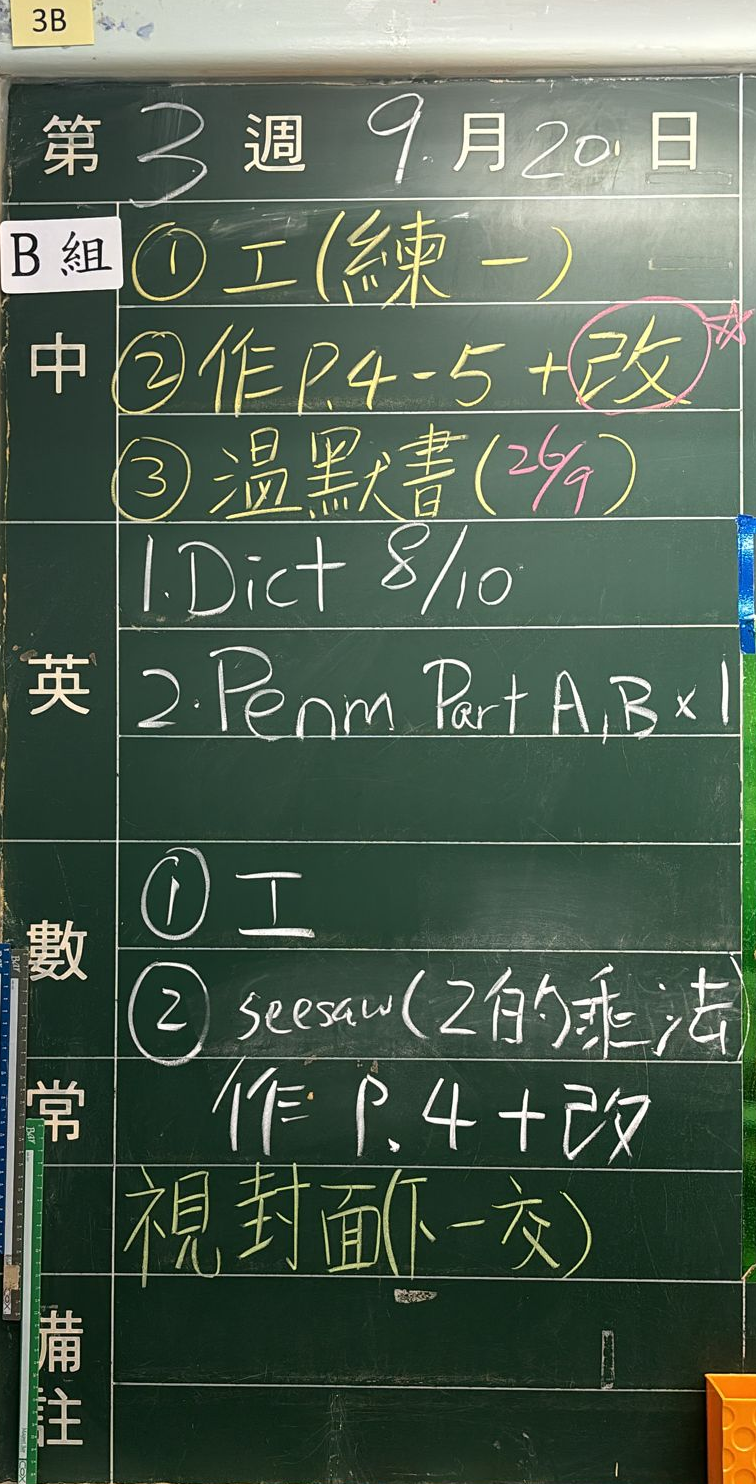 3B
第 3 週 9 月 20 日
B 組
中
① 工(練一)
② 作 P.4-5 + 改
③ 温默書(26/9)
英
1. Dict 8/10
2. Penm Part A, B x 1
數
① 工
② seesaw(2的乘法)
常
作 P.4 + 改
視 封面(下一交)
備註